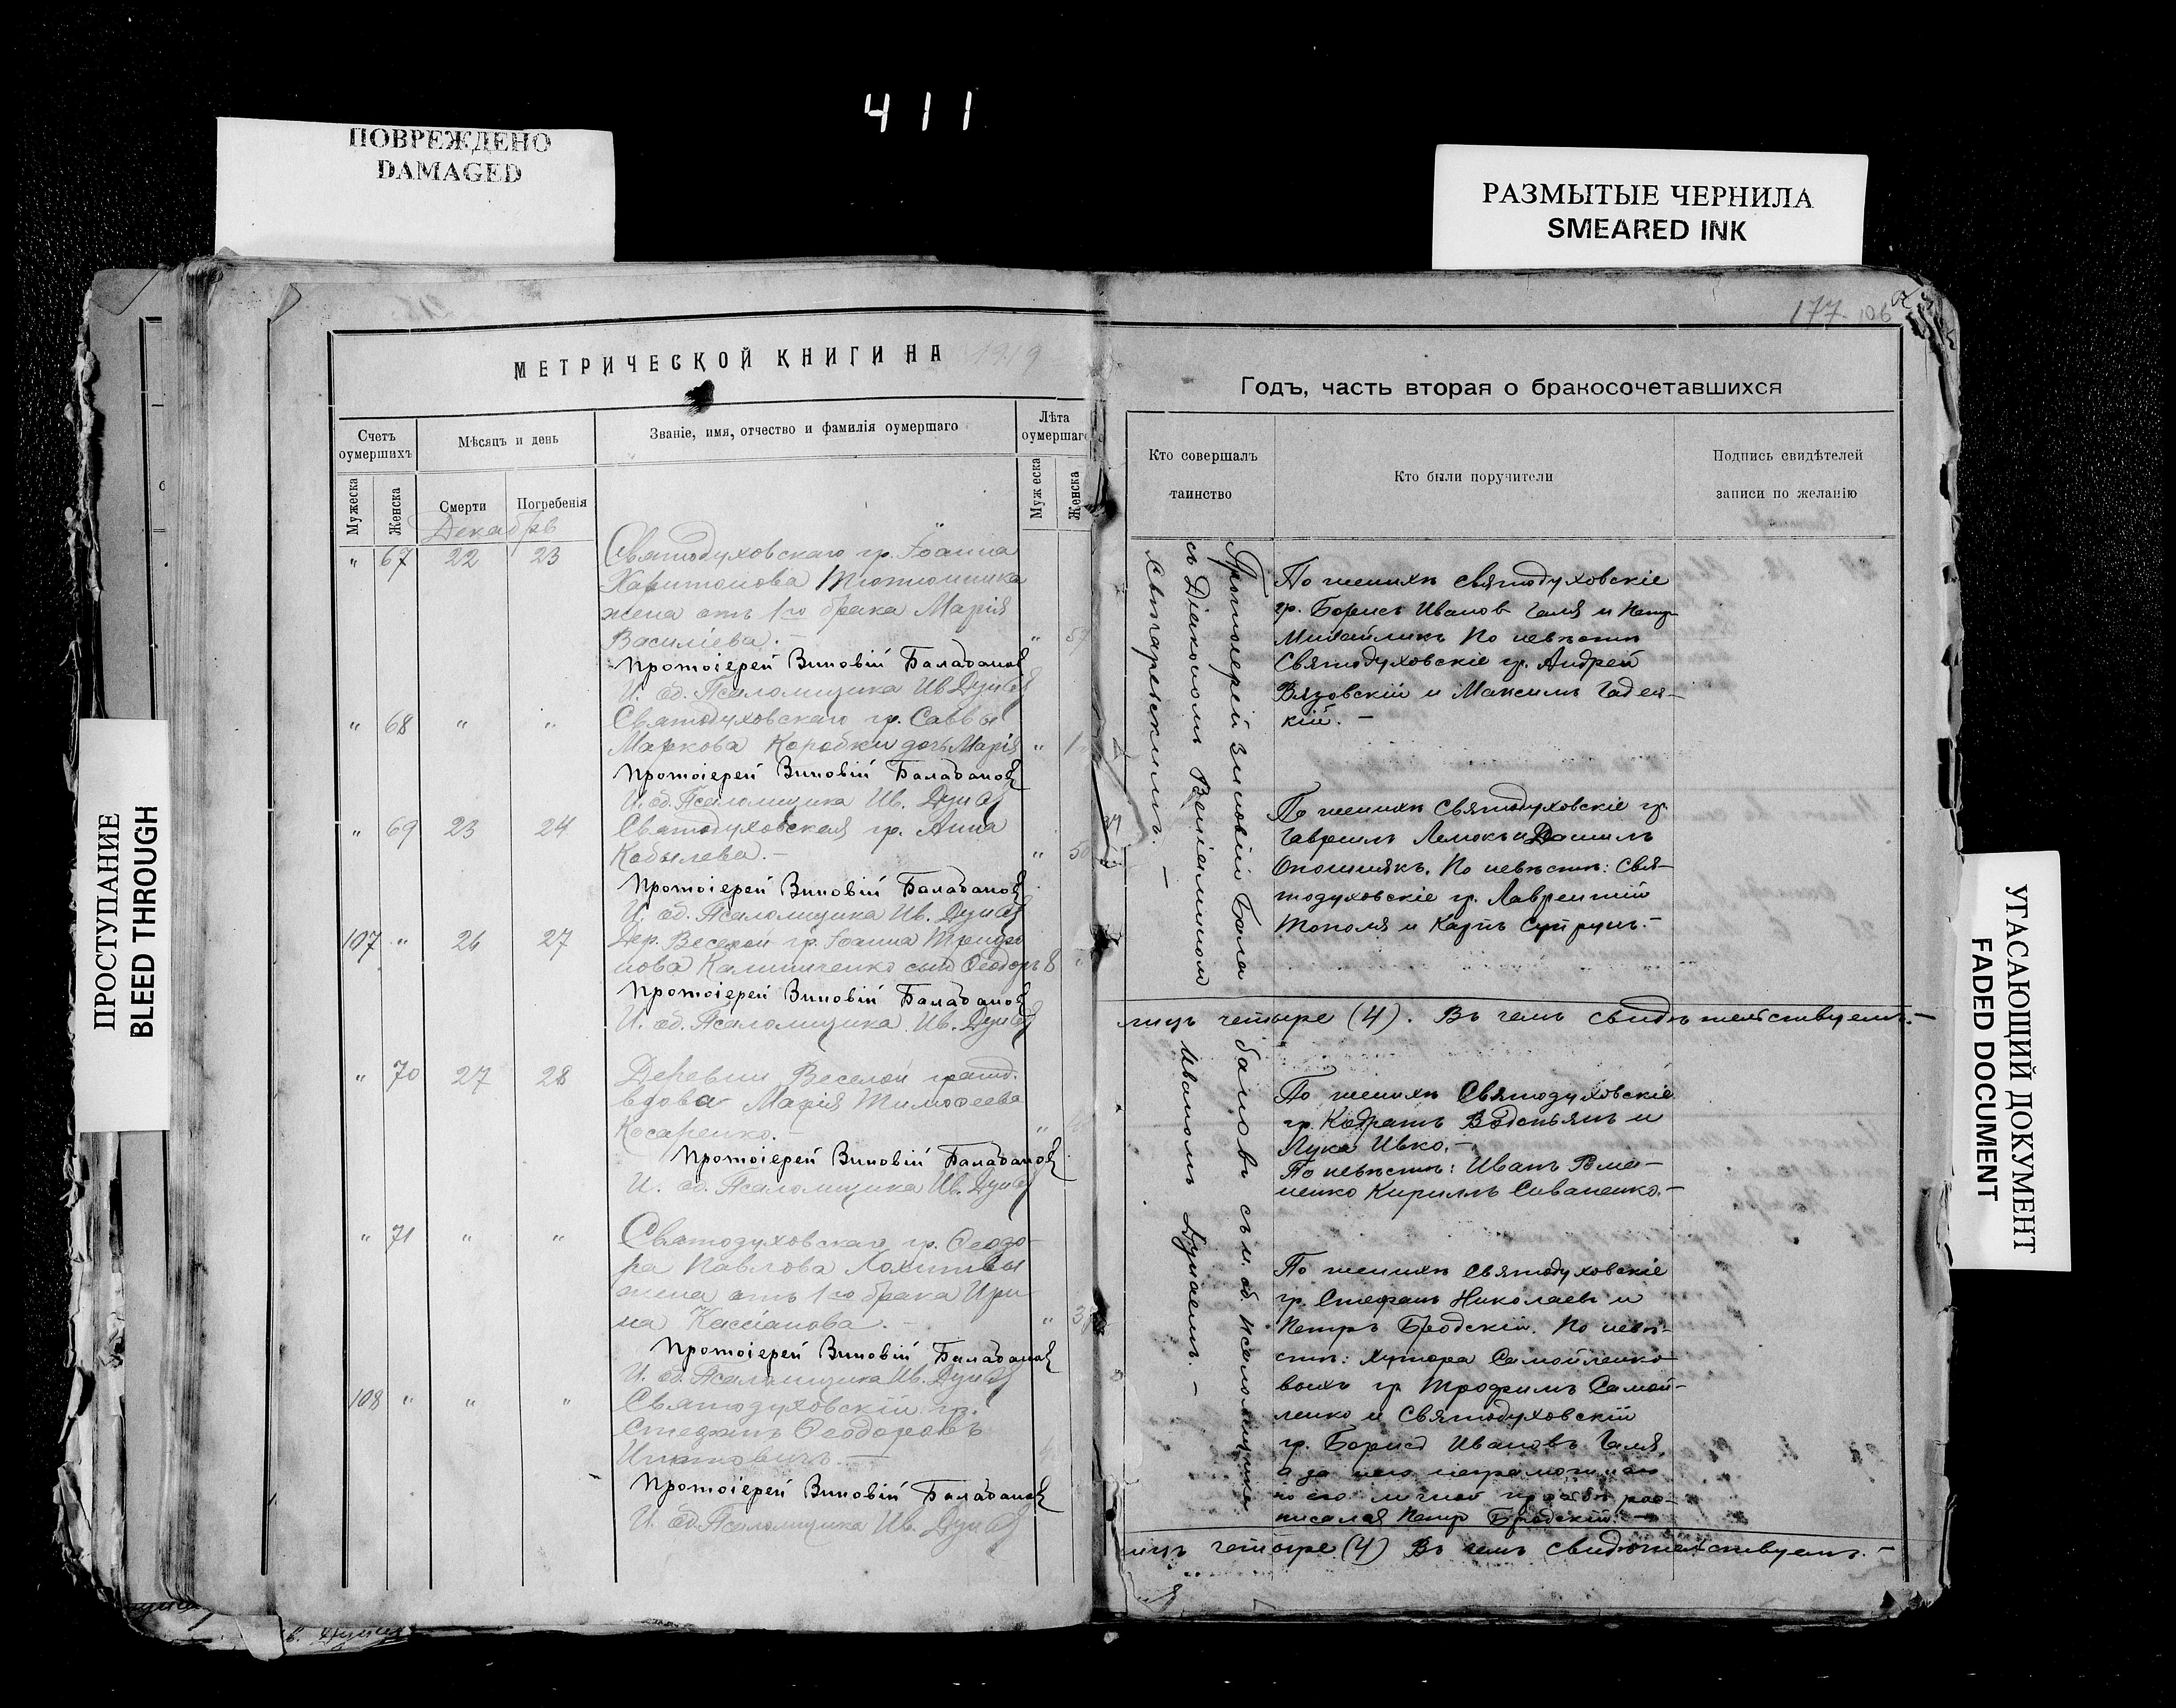 411
ПОВРЕЖДЕНО
DAMAGED
РАЗМЫТЫЕ ЧЕРНИЛА
SMEARED INK
ПРОСТУПАНИЕ
BLEED THROUGH
УГАСАЮЩИЙ ДОКУМЕНТ
FADED DOCUMENT
МЕТРИЧЕСКОЙ КНИГИ НА 1919
Счетъ оумершихъ
Мѣсяцъ и день
Званіе, имя, отчество и фамилія оумершаго
Лѣта оумершаго
Мужеска
Женска
Смерти
Погребенія
Мужеска
Женска
Декабрь
" 67 22 23 Святодуховскаго гр. Іоанна
Харитонова Тютюнника
жена отъ 1го брака Марія
Василіева.-
Протоіерей Зиновій Балабановъ
И. об. Псаломщика Ив. Дунаев
" 68 " " Святодуховскаго гр. Саввы
Маркова Коробки дочь Марія " 1
Протоіерей Зиновій Балабановъ
И. об. Псаломщика Ив. Дунаев
" 69 23 24 Святодуховская гр. Анна
Кобылева.- " 50
Протоіерей Зиновій Балабановъ
И. об. Псаломщика Ив. Дунаев
107 " 26 27 Дер. Веселой гр. Іоанна Трифо
нова Калиниченко сынъ Ѳеодоръ 8 "
Протоіерей Зиновій Балабановъ
И. об. Псаломщика Ив. Дунаев
" 70 27 28 Деревни Веселой гражд.
вдова Марія Тимоѳеева
Косаренко.- "
Протоіерей Зиновій Балабановъ
И. об. Псаломщика Ив. Дунаев
" 71 " " Святодуховскаго гр. Ѳеодо-
ра Павлова Лохитвы
жена отъ 1го брака Ири-
на Кассіанова.- "
Протоіерей Зиновій Балабановъ
И. об. Псаломщика Ив. Дунаев
108 " " " Святодуховскій гр.
Стефанъ Ѳеодоровъ
Протоіерей Зиновій Балабановъ
И. об. Псаломщика Ив. Дунаев
177. 106
Годъ, часть вторая о бракосочетавшихся
Кто совершалъ таинство
Кто были поручители
Подпись свидѣтелей записи по желанію
Протоіерей Зиновій Бала
съ Діакономъ Веніаминомъ
Ситаренскимъ.-
По женихѣ Святодуховскіе
гр. Борисъ Ивановъ Галя и Петръ
Михайликъ По невѣстѣ
Святодуховскіе гр. Андрей
Вязовскій и Максимъ Гадец-
кій.-
По женихѣ Святодуховскіе гр.
Гавріилъ Лемокъ и Даніилъ
Опошнякъ. По невѣстѣ: Свя-
тодуховскіе гр. Лаврентій
Тополя и Карпъ Супрунъ.-
лицъ четыре (4). Въ чемъ свидѣтельствуемъ.-
бановъ съ и. об. псаломщика
Иваномъ Дунаемъ.-
По женихѣ Святодуховскіе
гр. Кодратъ Водопьянъ и
Лука Ивко.-
По невѣстѣ: Иванъ Роме-
ненко Кириллъ Сиваненко.-
По женихѣ Святодуховскіе
гр. Стефанъ Николаевъ и
Петръ Бродскій. По невѣ-
стѣ: хутора Самойленко-
выхъ гр Трофимъ Самой-
ленко и Святодуховскій
гр. Борисъ Ивановъ Галя,
а за него неграмотнаго
по его личной просьбѣ рос-
писался Петръ Бродскій.-
лицъ четыре (4) Въ чемъ свидѣтельствуемъ.-